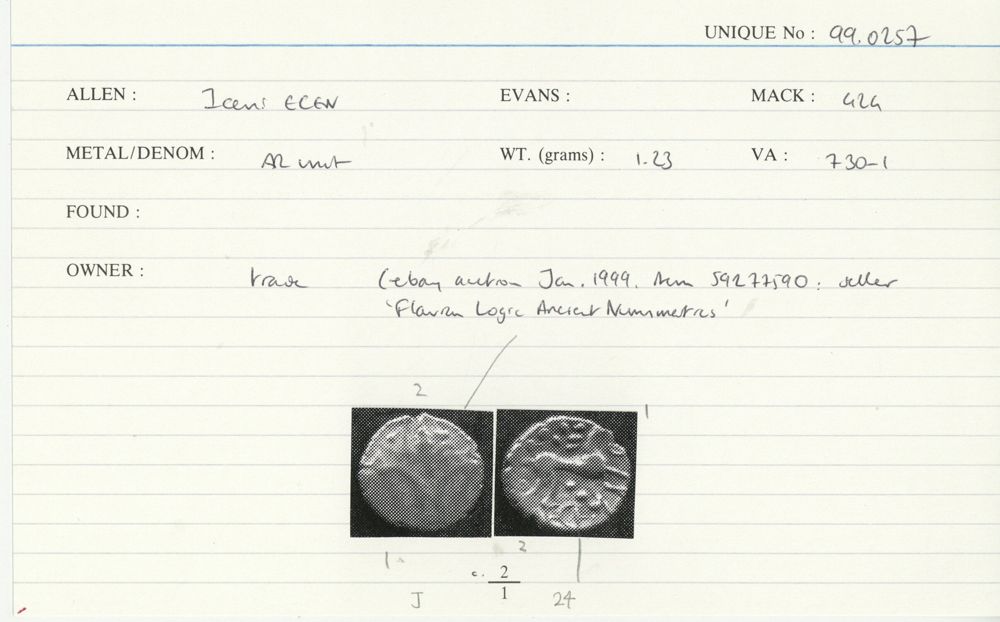 UNIQUE No : 99.0257
ALLEN : Iceni ECEN EVANS : MACK : 424
METAL/DENOM : AR unit WT. (grams) : 1.23 VA : 730-1
FOUND :
OWNER : trade (ebay auction Jan. 1999. Item 59277590 : seller
'Flavian Logic Ancient Numismatics'
2
1
1 2
c. 2
1
J 24